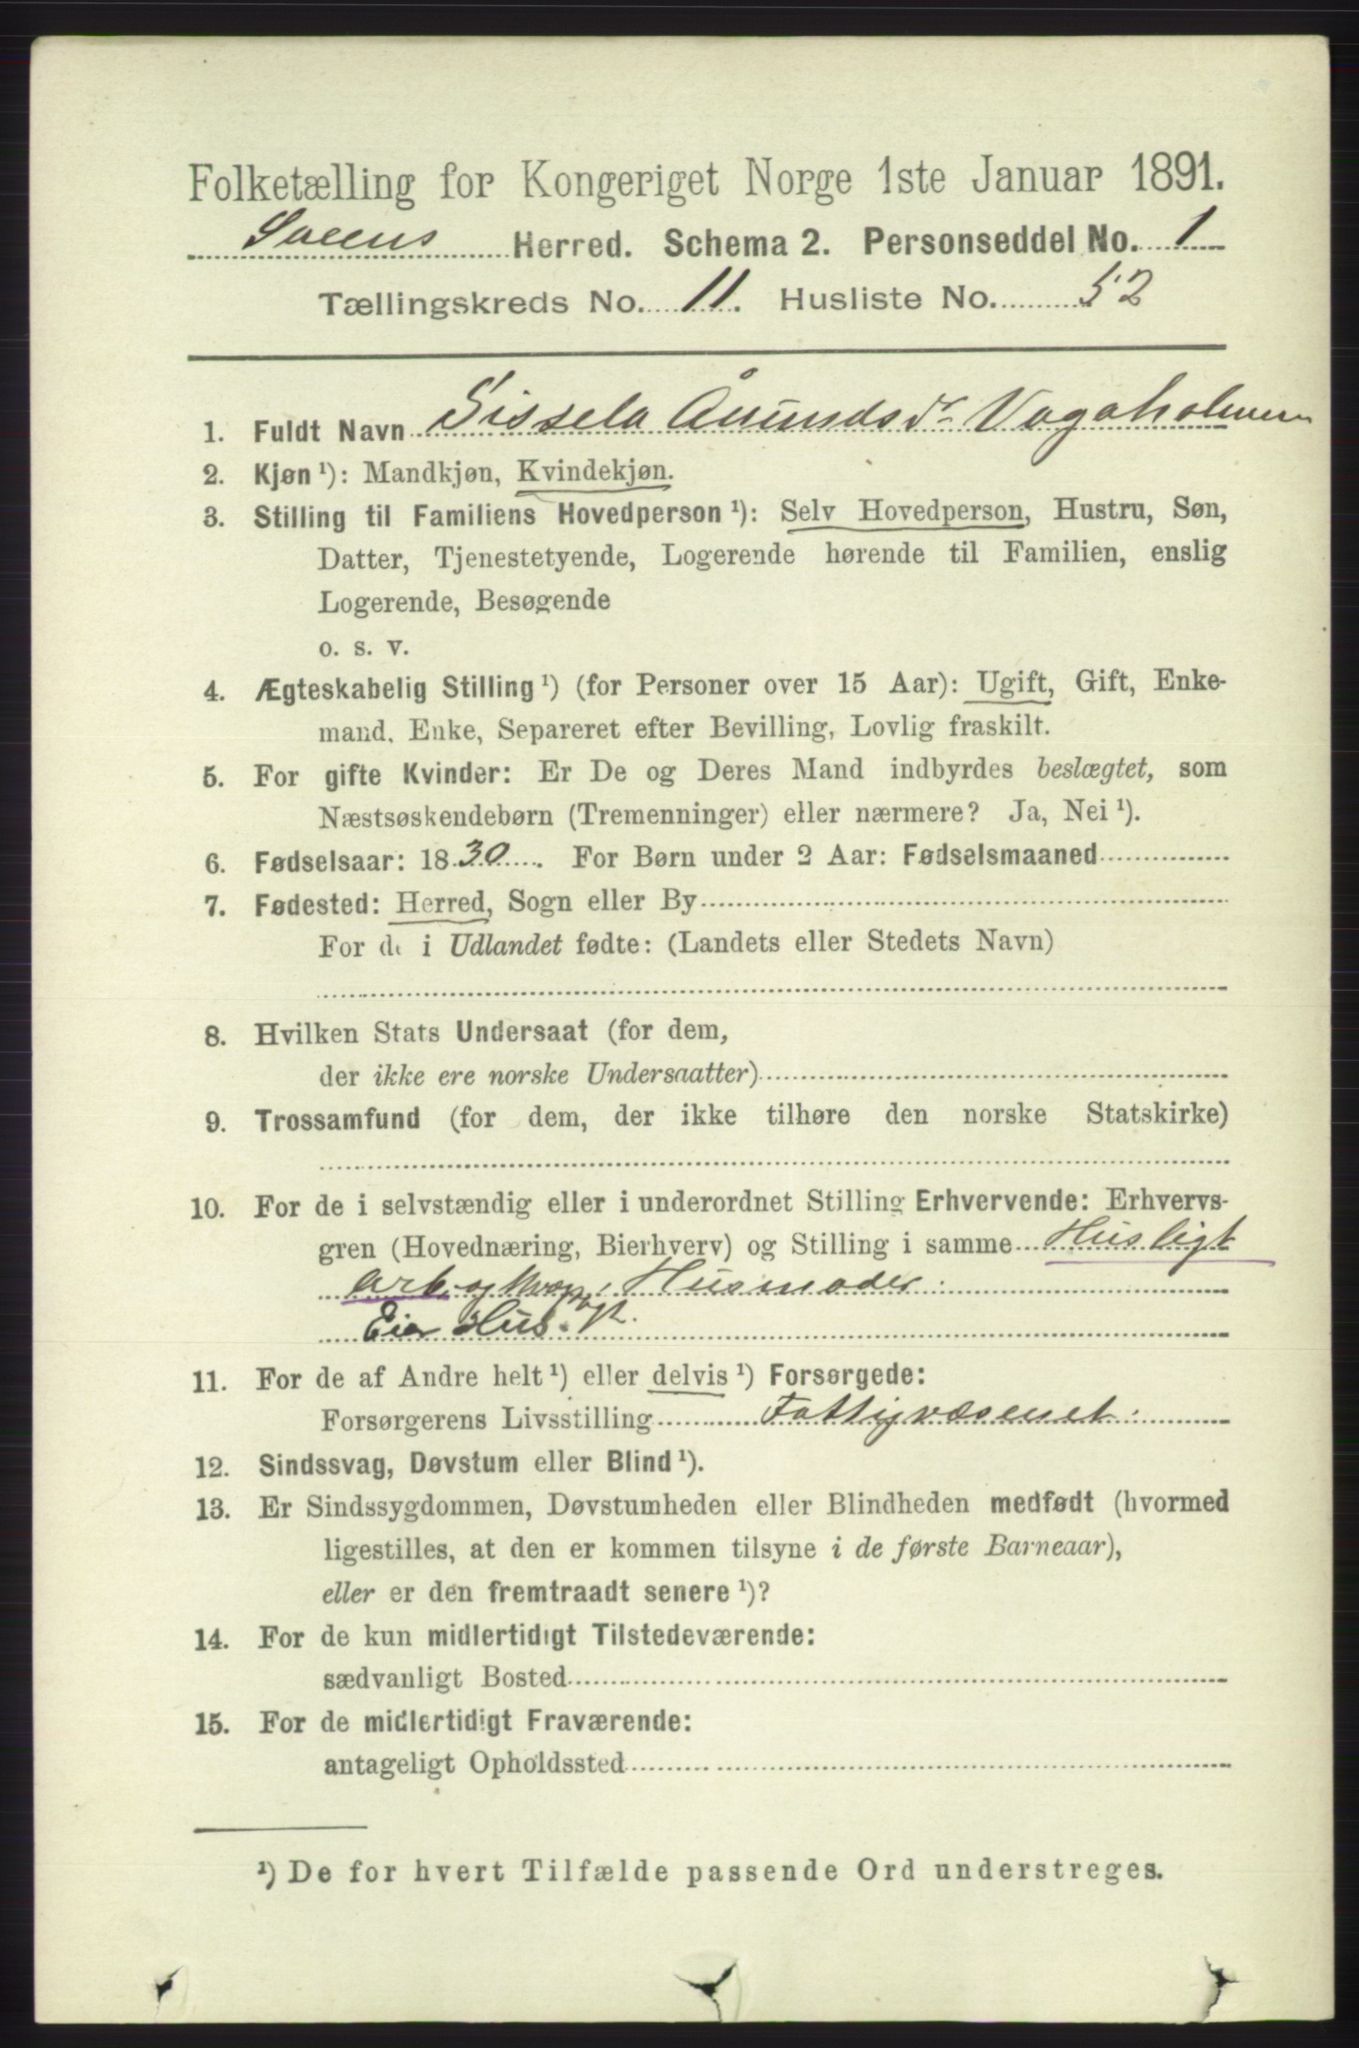 Folketælling for Kongeriget Norge 1ste Januar 1891.
Herred. Schema 2. Personseddel No. 1
Tællingskreds No. 11. Husliste No. 52
1. Fuldt Navn Sissela Ånundsdr Vagaholmen
2. Kjøn ¹): Mandkjøn, Kvindekjøn.
3. Stilling til Familiens Hovedperson ¹): Selv Hovedperson, Hustru, Søn,
Datter, Tjenestetyende, Logerende hørende til Familien, enslig
Logerende, Besøgende
o. s. v.
4. Ægteskabelig Stilling ¹) (for Personer over 15 Aar): Ugift, Gift, Enke-
mand, Enke, Separeret efter Bevilling, Lovlig fraskilt.
5. For gifte Kvinder: Er De og Deres Mand indbyrdes beslægtet, som
Næstsøskendebørn (Tremenninger) eller nærmere? Ja, Nei ¹).
6. Fødselsaar: 1830. For Børn under 2 Aar: Fødselsmaaned
7. Fødested: Herred, Sogn eller By
For de i Udlandet fødte: (Landets eller Stedets Navn)
8. Hvilken Stats Undersaat (for dem,
der ikke ere norske Undersaatter)
9. Trossamfund (for dem, der ikke tilhøre den norske Statskirke)
10. For de i selvstændig eller i underordnet Stilling Erhvervende: Erhvervs-
gren (Hovednæring, Bierhverv) og Stilling i samme Husligt
Arb. og Husmoder.
Eier Hus.
11. For de af Andre helt ¹) eller delvis ¹) Forsørgede:
Forsørgerens Livsstilling Fattigvæsenet.
12. Sindssvag, Døvstum eller Blind ¹).
13. Er Sindssygdommen, Døvstumheden eller Blindheden medfødt (hvormed
ligestilles, at den er kommen tilsyne i de første Barneaar),
eller er den fremtraadt senere ¹)?
14. For de kun midlertidigt Tilstedeværende:
sædvanligt Bosted
15. For de midlertidigt Fraværende:
antageligt Opholdssted
¹) De for hvert Tilfælde passende Ord understreges.